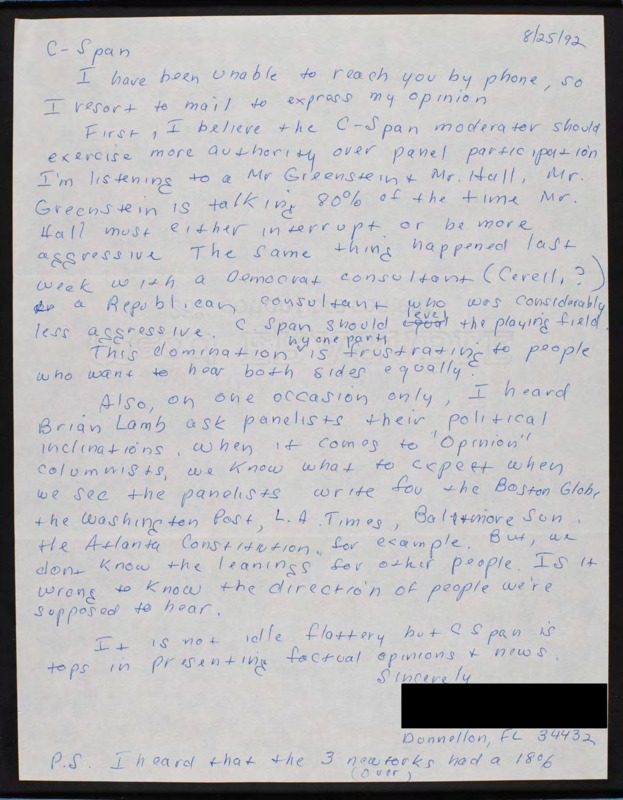 8/25/92
C-Span
I have been unable to reach you by phone, so
I resort to mail to express my opinion
First, I believe the C-Span moderator should
exercise more authority over panel participation
I'm listening to a Mr Greenstein + Mr. Hall, Mr.
Greenstein is talking 80% of the time Mr.
Hall must either interrupt or be more
aggressive The same thing happened last
week with a Democrat consultant (Cerell, ?)
a Republican consultant who was considerably
less aggressive. C. Span should level the playing field.
This domination by one party is frustrating to people
who want to hear both sides equally.
Also, on one occasion only, I heard
Brian Lamb ask panelists their political
inclinations. When it comes to "Opinion"
columnists, we know what to expect when
we see the panelists write for the Boston Globe,
the Washington Post, L.A. Times, Baltimore Sun.
the Atlanta Constitution, for example. But, we
dont know the leanings for other people. Is it
wrong to know the direction of people we're
supposed to hear.
It is not idle flattery but C Span is
tops in presenting factual opinions + news.
Sincerely
Dunnellon, FL 34432
P.S. I heard that the 3 networks had a 18%
(over)